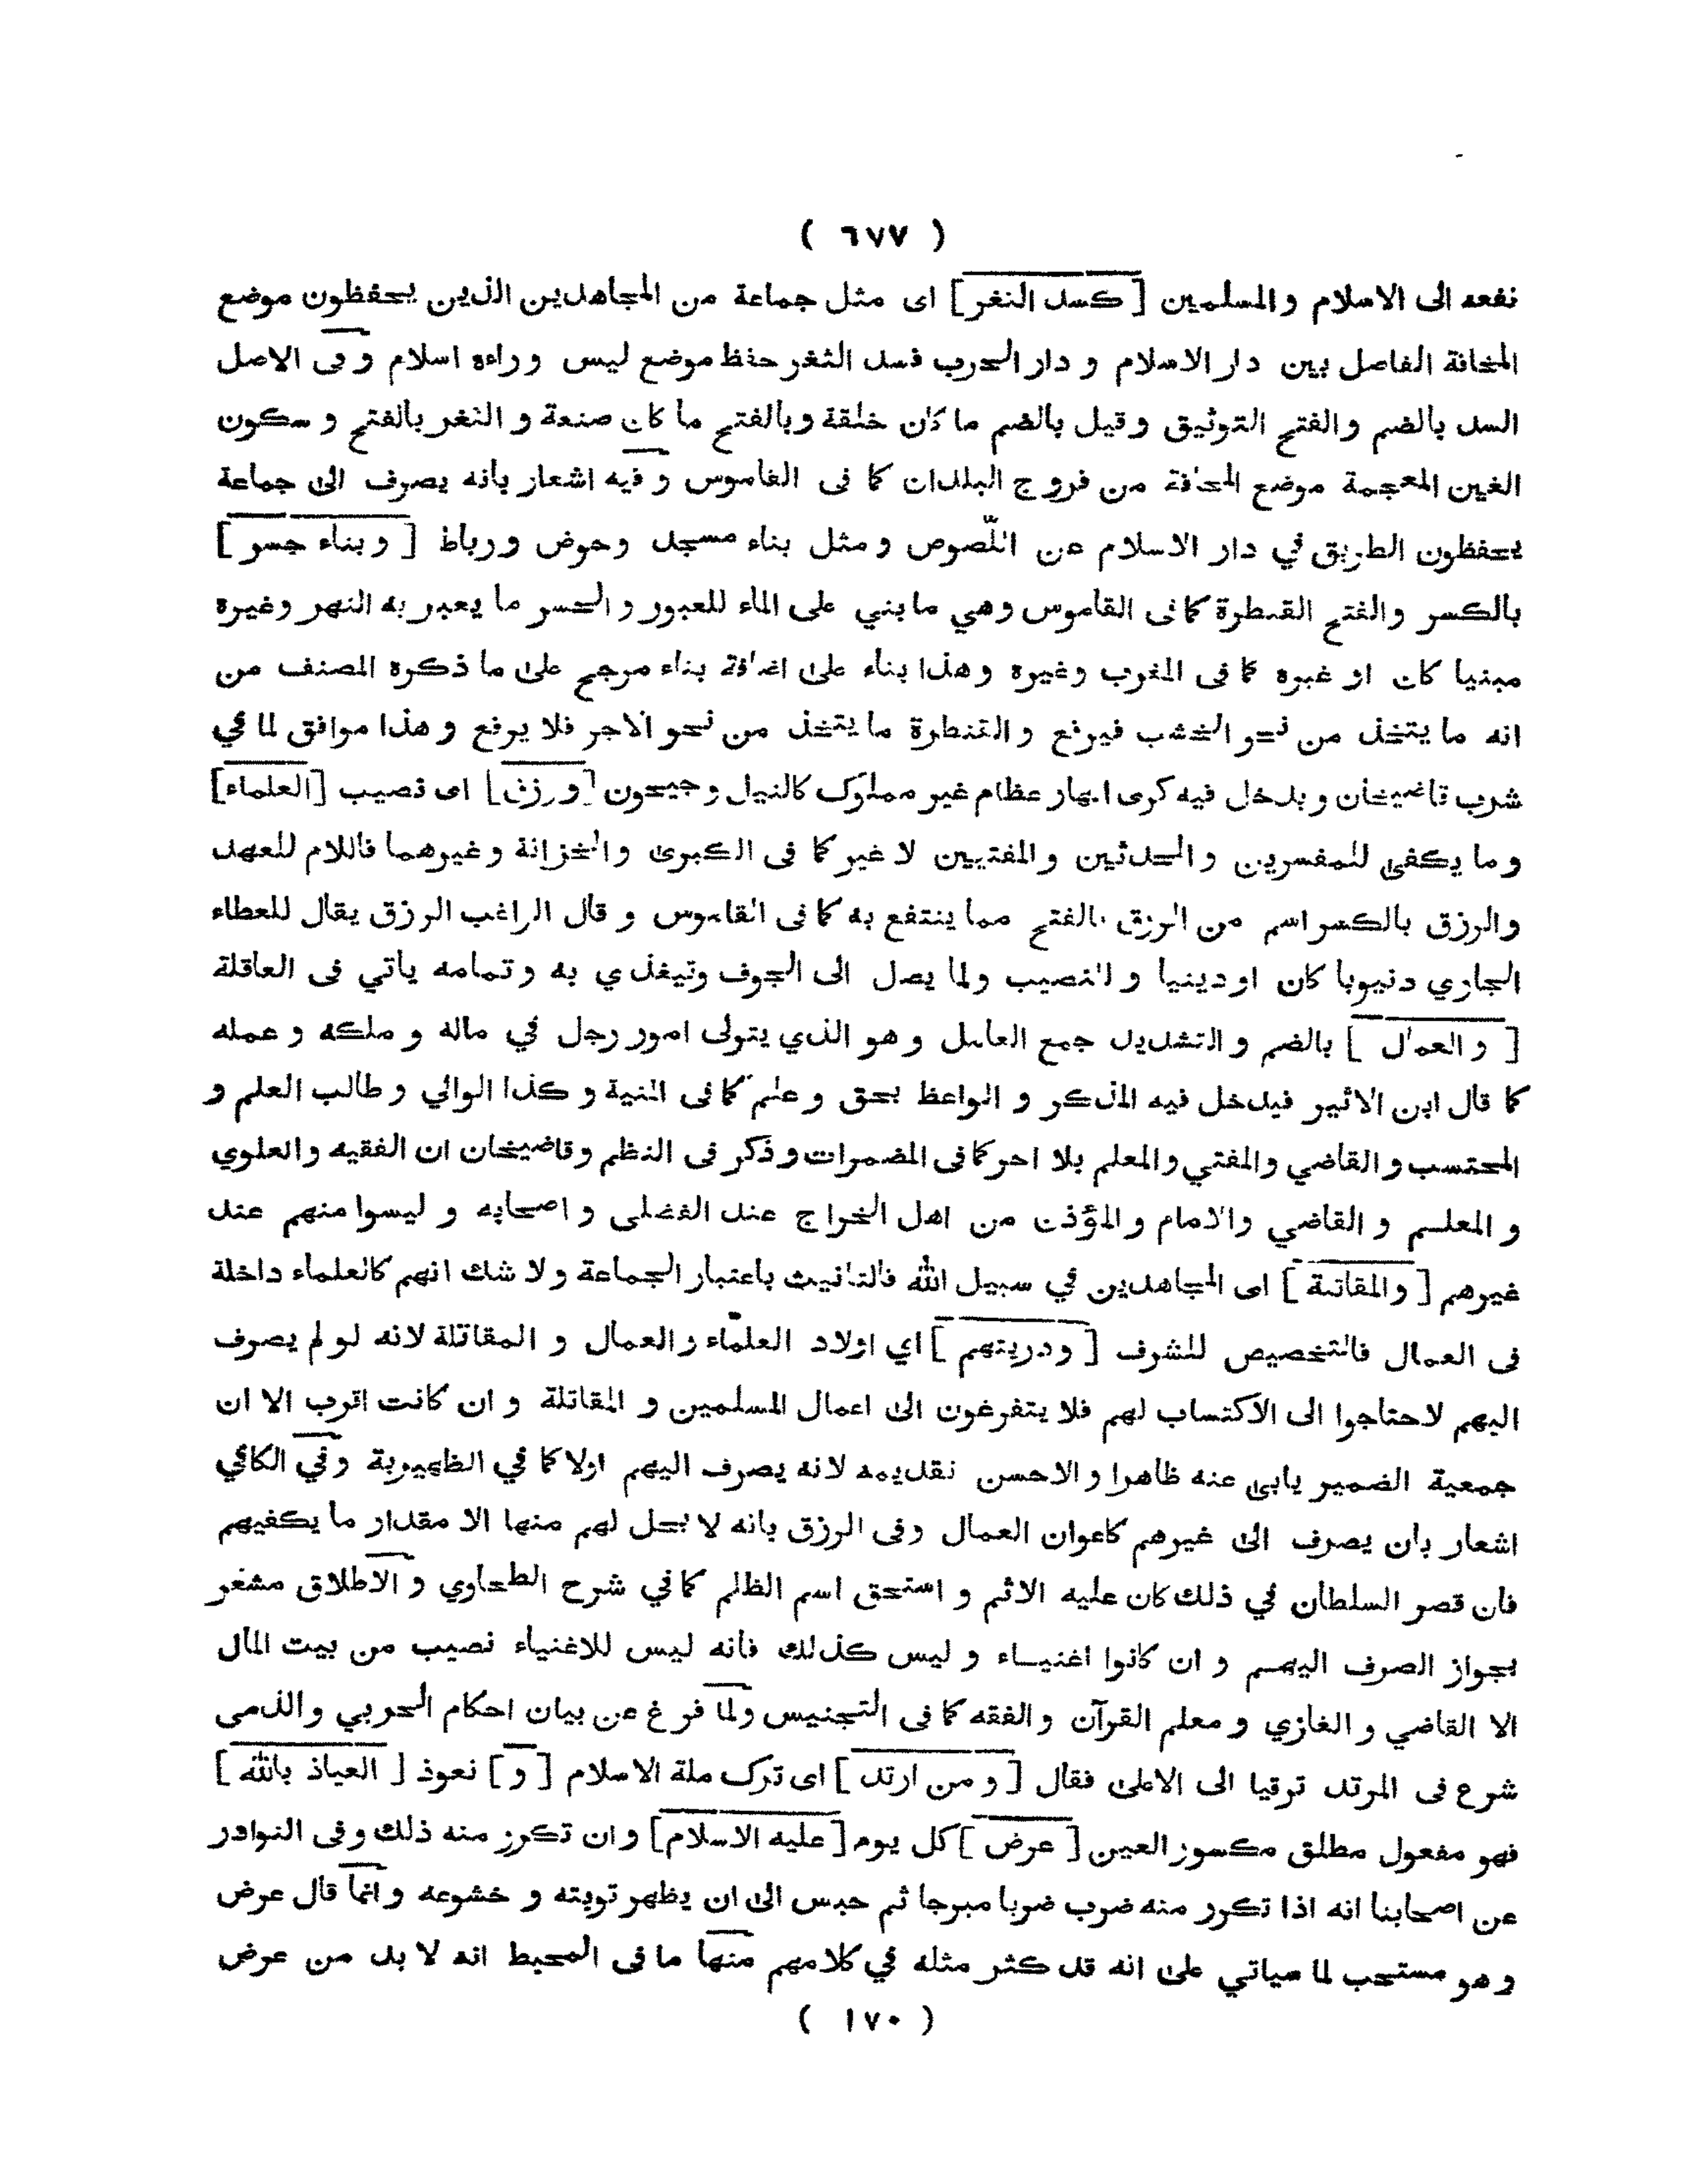 ( ٦٧٧ )
نفعه الى الاسلام والمسلمين [كسد الثغر] اى مثل جماعة من المجاهدين الذين يحفظون موضع
المخافة الفاصل بين دار الاسلام و دار الحرب فسد الثغر حفظ موضع ليس وراءه اسلام و فى الاصل
السد بالضم والفتح التوثيق وقيل بالضم ما كان خلقة وبالفتح ما كان صنعة و الثغر بالفتح و سكون
الغين المعجمة موضع المخافة من فروج البلدان كما فى القاموس و فيه اشعار بانه يصرف الى جماعة
يحفظون الطريق في دار الاسلام عن اللّصوص و مثل بناء مسجد وحوض ورباط [ وبناء جسر]
بالكسر والفتح القنطرة كما فى القاموس وهي ما بني على الماء للعبور و الجسر ما يعبر به النهر وغيره
مبنيا كان او غيره كما فى المغرب وغيره وهذا بناء على اضافة بناء مرجح على ما ذكره المصنف من
انه ما يتخذ من نحو الخشب فيرفع و القنطرة ما يتخذ من نحو الاجر فلا يرفع و هذا موافق لما في
شرب قاضيخان و يدخل فيه كرى انهار عظام غير مملوك كالنيل و جيحون [ورزق] اى نصيب [العلماء]
وما يكفى للمفسرين والمحدثين والمفتيين لا غير كما فى الكبرى والخزانة وغيرهما فاللام للعهد
والرزق بالكسر اسم من الرزق بالفتح مما ينتفع به كما فى القاموس و قال الراغب الرزق يقال للعطاء
الجاري دنيويا كان او دينيا و للنصيب ولما يصل الى الجوف وتيغذي به و تمامه ياتي فى العاقلة
[ والعمال ] بالضم و التشديد جمع العامل و هو الذي يتولى امور رجل في ماله و ملكه و عمله
كما قال ابن الاثير فيدخل فيه المذكر و الواعظ بحق و علم كما فى المنية و كذا الوالي و طالب العلم و
المحتسب و القاضي والمفتي و المعلم بلا اجر كما فى المضمرات و ذكر فى النظم وقاضيخان ان الفقيه والعلوي
و المعلم و القاضي والامام والمؤذن من اهل الخراج عند الفضلى و اصحابه و ليسوا منهم عند
غيرهم [والمقاتلة] اى المجاهدين في سبيل الله فالتانيث باعتبار الجماعة ولا شك انهم كالعلماء داخلة
فى العمال فالتخصيص للشرف [وذريتهم] اي اولاد العلماء والعمال و المقاتلة لانه لو لم يصرف
اليهم لاحتاجوا الى الاكتساب لهم فلا يتفرغون الى اعمال المسلمين و المقاتلة و ان كانت اقرب الا ان
جمعية الضمير يابى عنه ظاهرا والاحسن تقديمه لانه يصرف اليهم اولا كما في الظهيرية وفي الكافي
اشعار بان يصرف الى غيرهم كاعوان العمال وفى الرزق بانه لا يحل لهم منها الا مقدار ما يكفيهم
فان قصر السلطان في ذلك كان عليه الاثم و استحق اسم الظالم كما في شرح الطحاوي و الاطلاق مشعر
بجواز الصرف اليهم و ان كانوا اغنياء و ليس كذلك فانه ليس للاغنياء نصيب من بيت المال
الا القاضي و الغازي و معلم القرآن والفقه كما فى التجنيس ولما فرغ عن بيان احكام الحربي والذمى
شرع فى المرتد ترقيا الى الاعلى فقال [ومن ارتد] اى ترك ملة الاسلام [و] نعوذ [العياذ بالله]
فهو مفعول مطلق مكسور العين [عرض] كل يوم [عليه الاسلام] وان تكرر منه ذلك وفى النوادر
عن اصحابنا انه اذا تكرر منه ضرب ضربا مبرحا ثم حبس الى ان يظهر توبته و خشوعه وانما قال عرض
وهو مستحب لما سياتي على انه قد كثر مثله في كلامهم منها ما فى المحيط انه لا بد من عرض
( ١٧٠ )